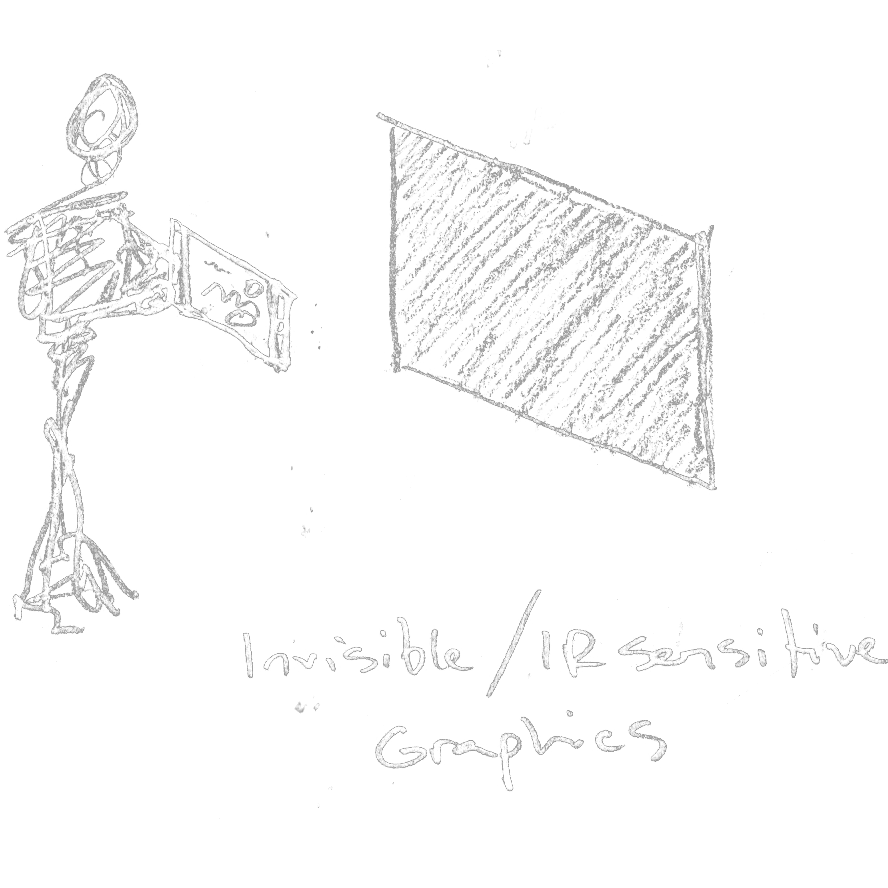 Invisible / IR sensitive
Graphics